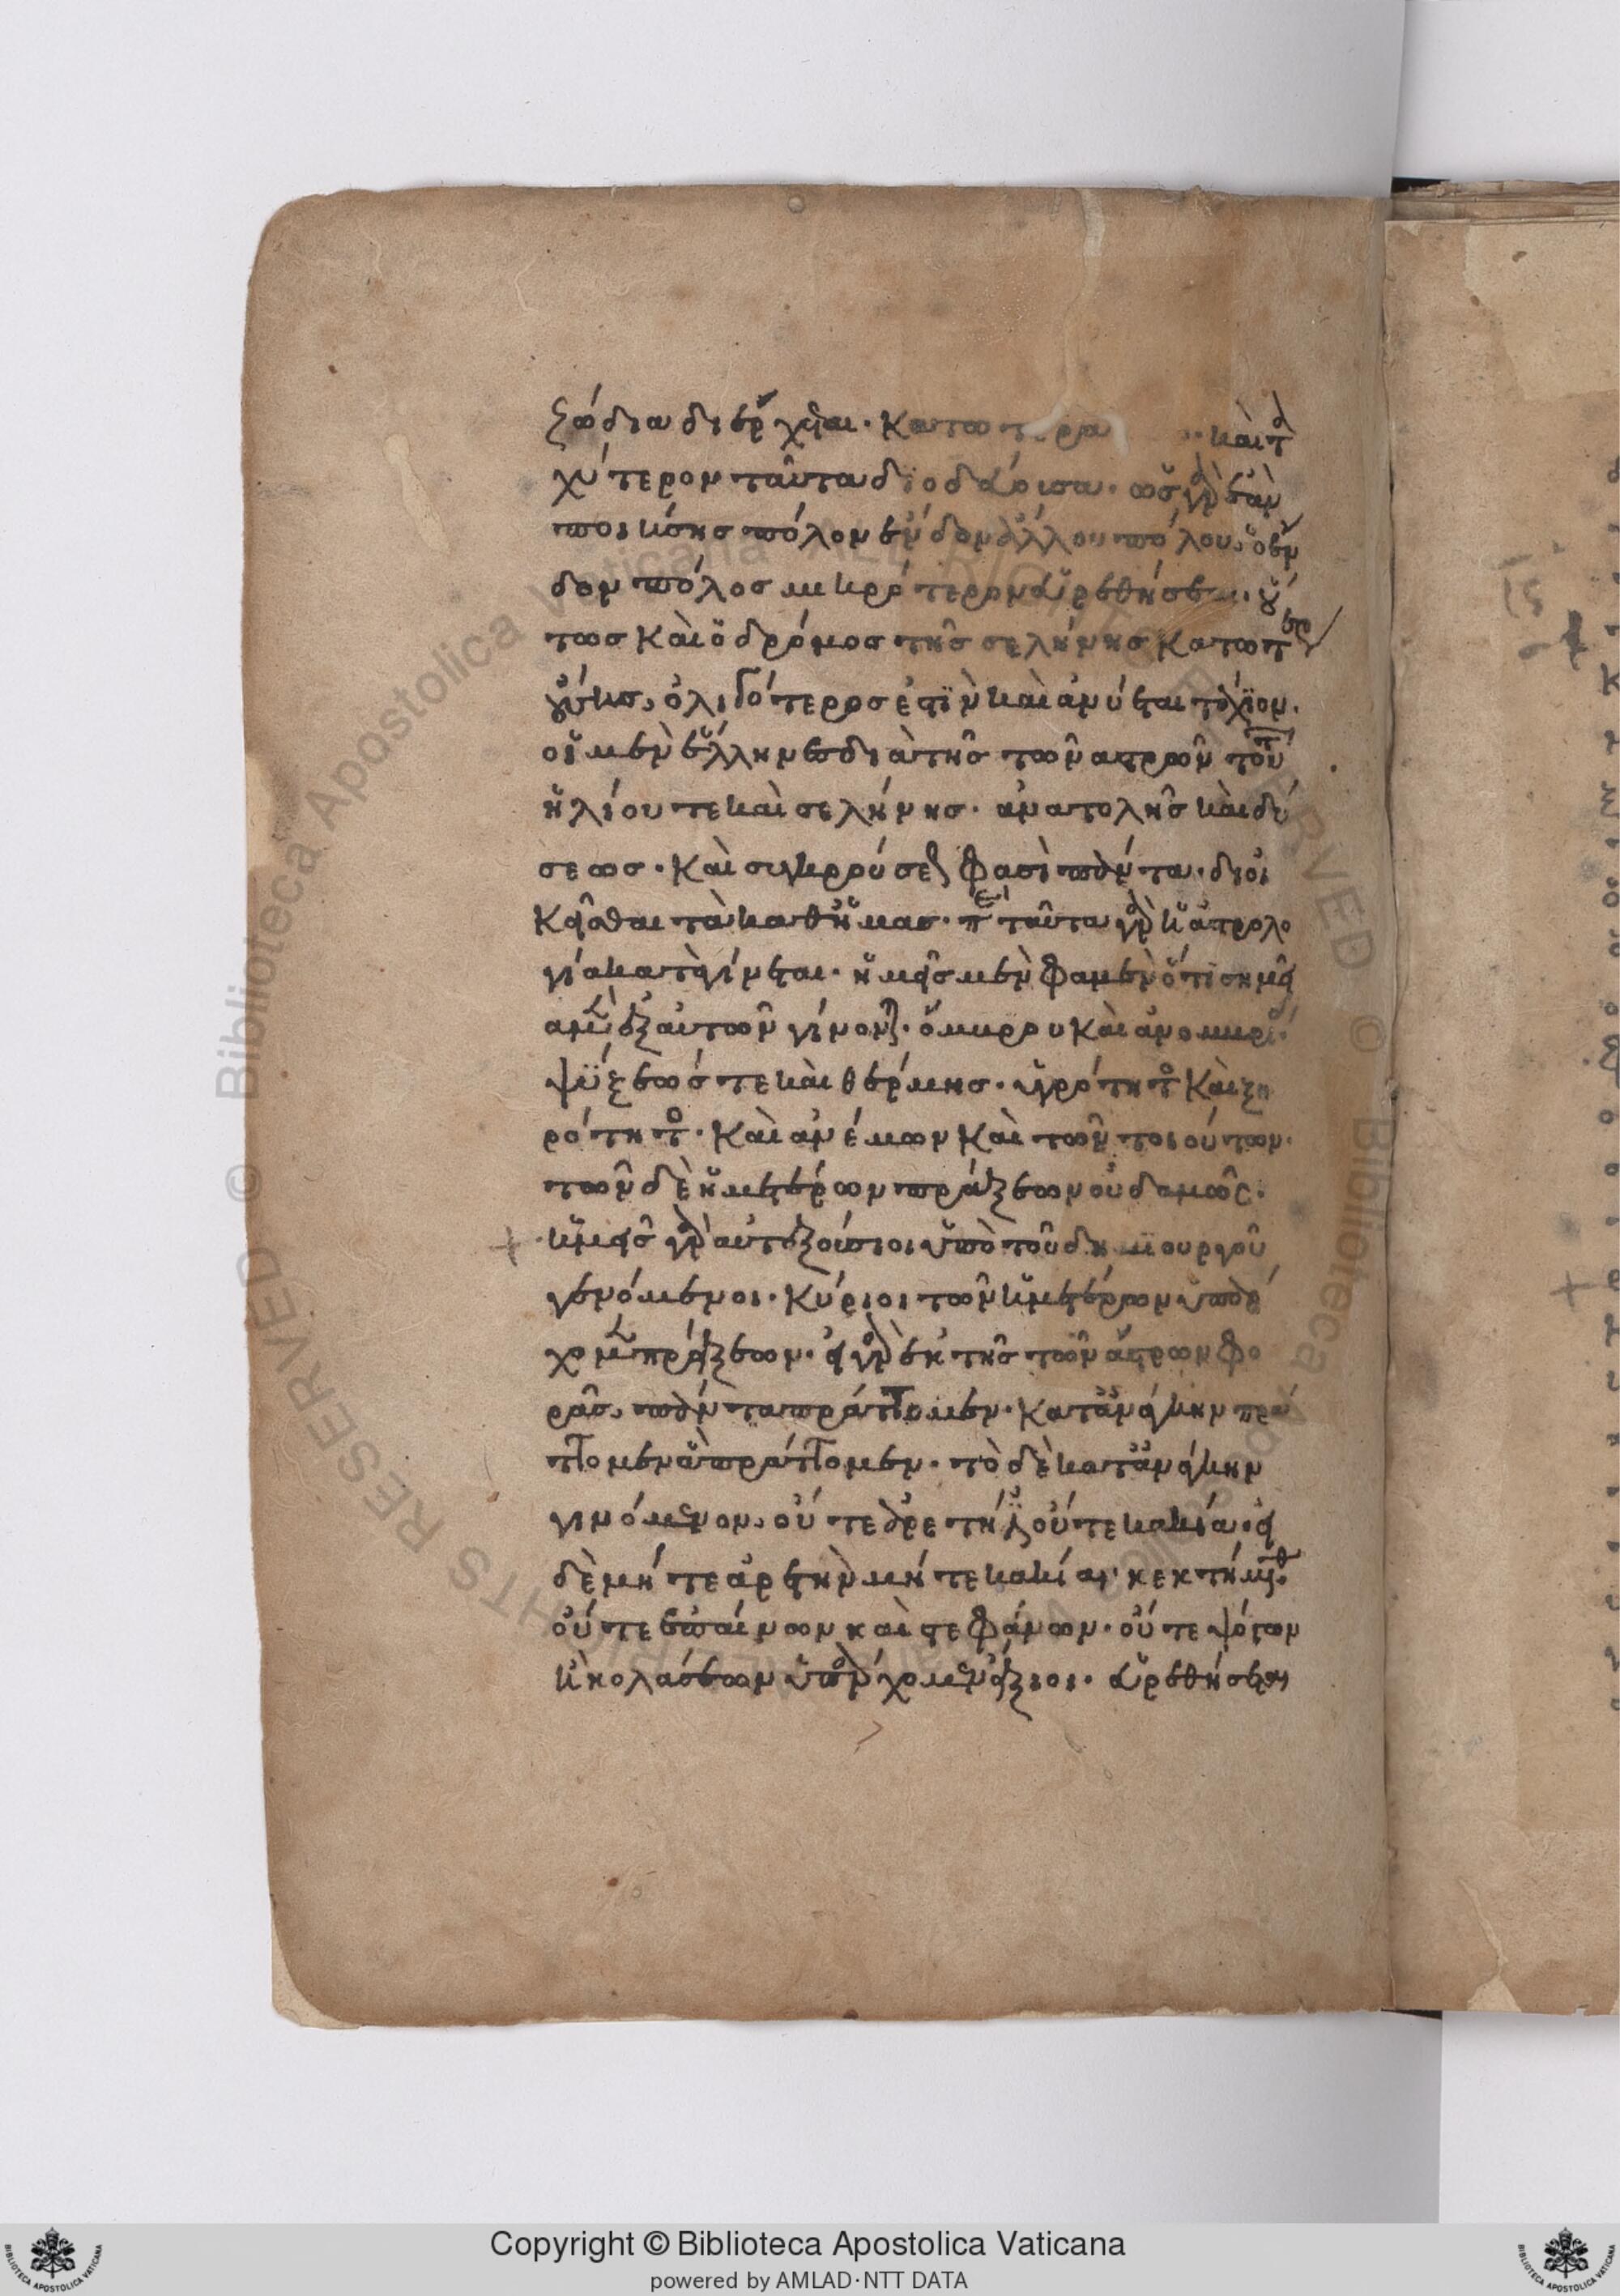 ζώδια διέρχεται· κατωτέρα καὶ τα
χύτερον ταῦτα διοδεύσισα· ὡσ γὰρ ἐὰν
ποιήσησ πόλον ἔνδον ἄλλου πόλου, ὁ ἔν
δον πόλοσ μικρότερον εὑρεθήσεται· οὕ
τωσ καὶ ὁ δρόμοσ τῆσ σελήνησ κατωτέρ
οὔσησ, ὀλιγότεροσ ἐστὶν καὶ ἀνύεται τάχιον·
οἱ μὲν ἕλληνεσ διὰ τῆσ τῶν ἀστρων τούτων
ἡλίου τε καὶ σελήνησ· ἀνατολῆσ καὶ δύ
σεωσ· καὶ συγκρούσεωσ φασὶ πάντα· διοι
κεῖσθαι τὰ καθ ἡμασ· περὶ ταῦτα γὰρ ἡ ἀστρολο
γία καταγίνεται· ἡμεῖσ μὲν φαμεν ὅτι σημεῖ
α μὲν ἐξ αὐτῶν γίνονται· ὄμβρου καὶ ἀνομβρίασ·
ψύξεώσ τε καὶ θέρμησ· ὑγρότητοσ καὶ ξη
ρότητοσ· καὶ ἀνέμων καὶ τῶν τοιούτων·
τῶν δὲ ἡμετέρων πράξεων οὐδαμῶς·
ἡμεῖσ γὰρ αὐτεξούσιοι ὑπὸ τοῦ δημιουργοῦ
γενόμενοι· κύριοι τῶν ἡμετέρων ὑπάρ
χομεν πράξεων· εἰ γὰρ ἐκ τῆσ τῶν ἄστρων φο
ρᾶσ, πάντα πράττομεν· κατ ἀνάγκην πράτ
τομεν ἃ πράττομεν· τὸ δὲ κατ ἀνάγκην
γινόμενον, οὔτε ἀρετή ἐστιν οὔτε κακία· εἰ
δὲ μήτε ἀρετὴν μήτε κακίαν κεκτήμεθα
οὔτε ἐπαίνων καὶ στεφάνων· οὔτε ψόγων
ἢ κολάσεων ὑπάρχομεν ἄξιοι· εὑρεθήσεται